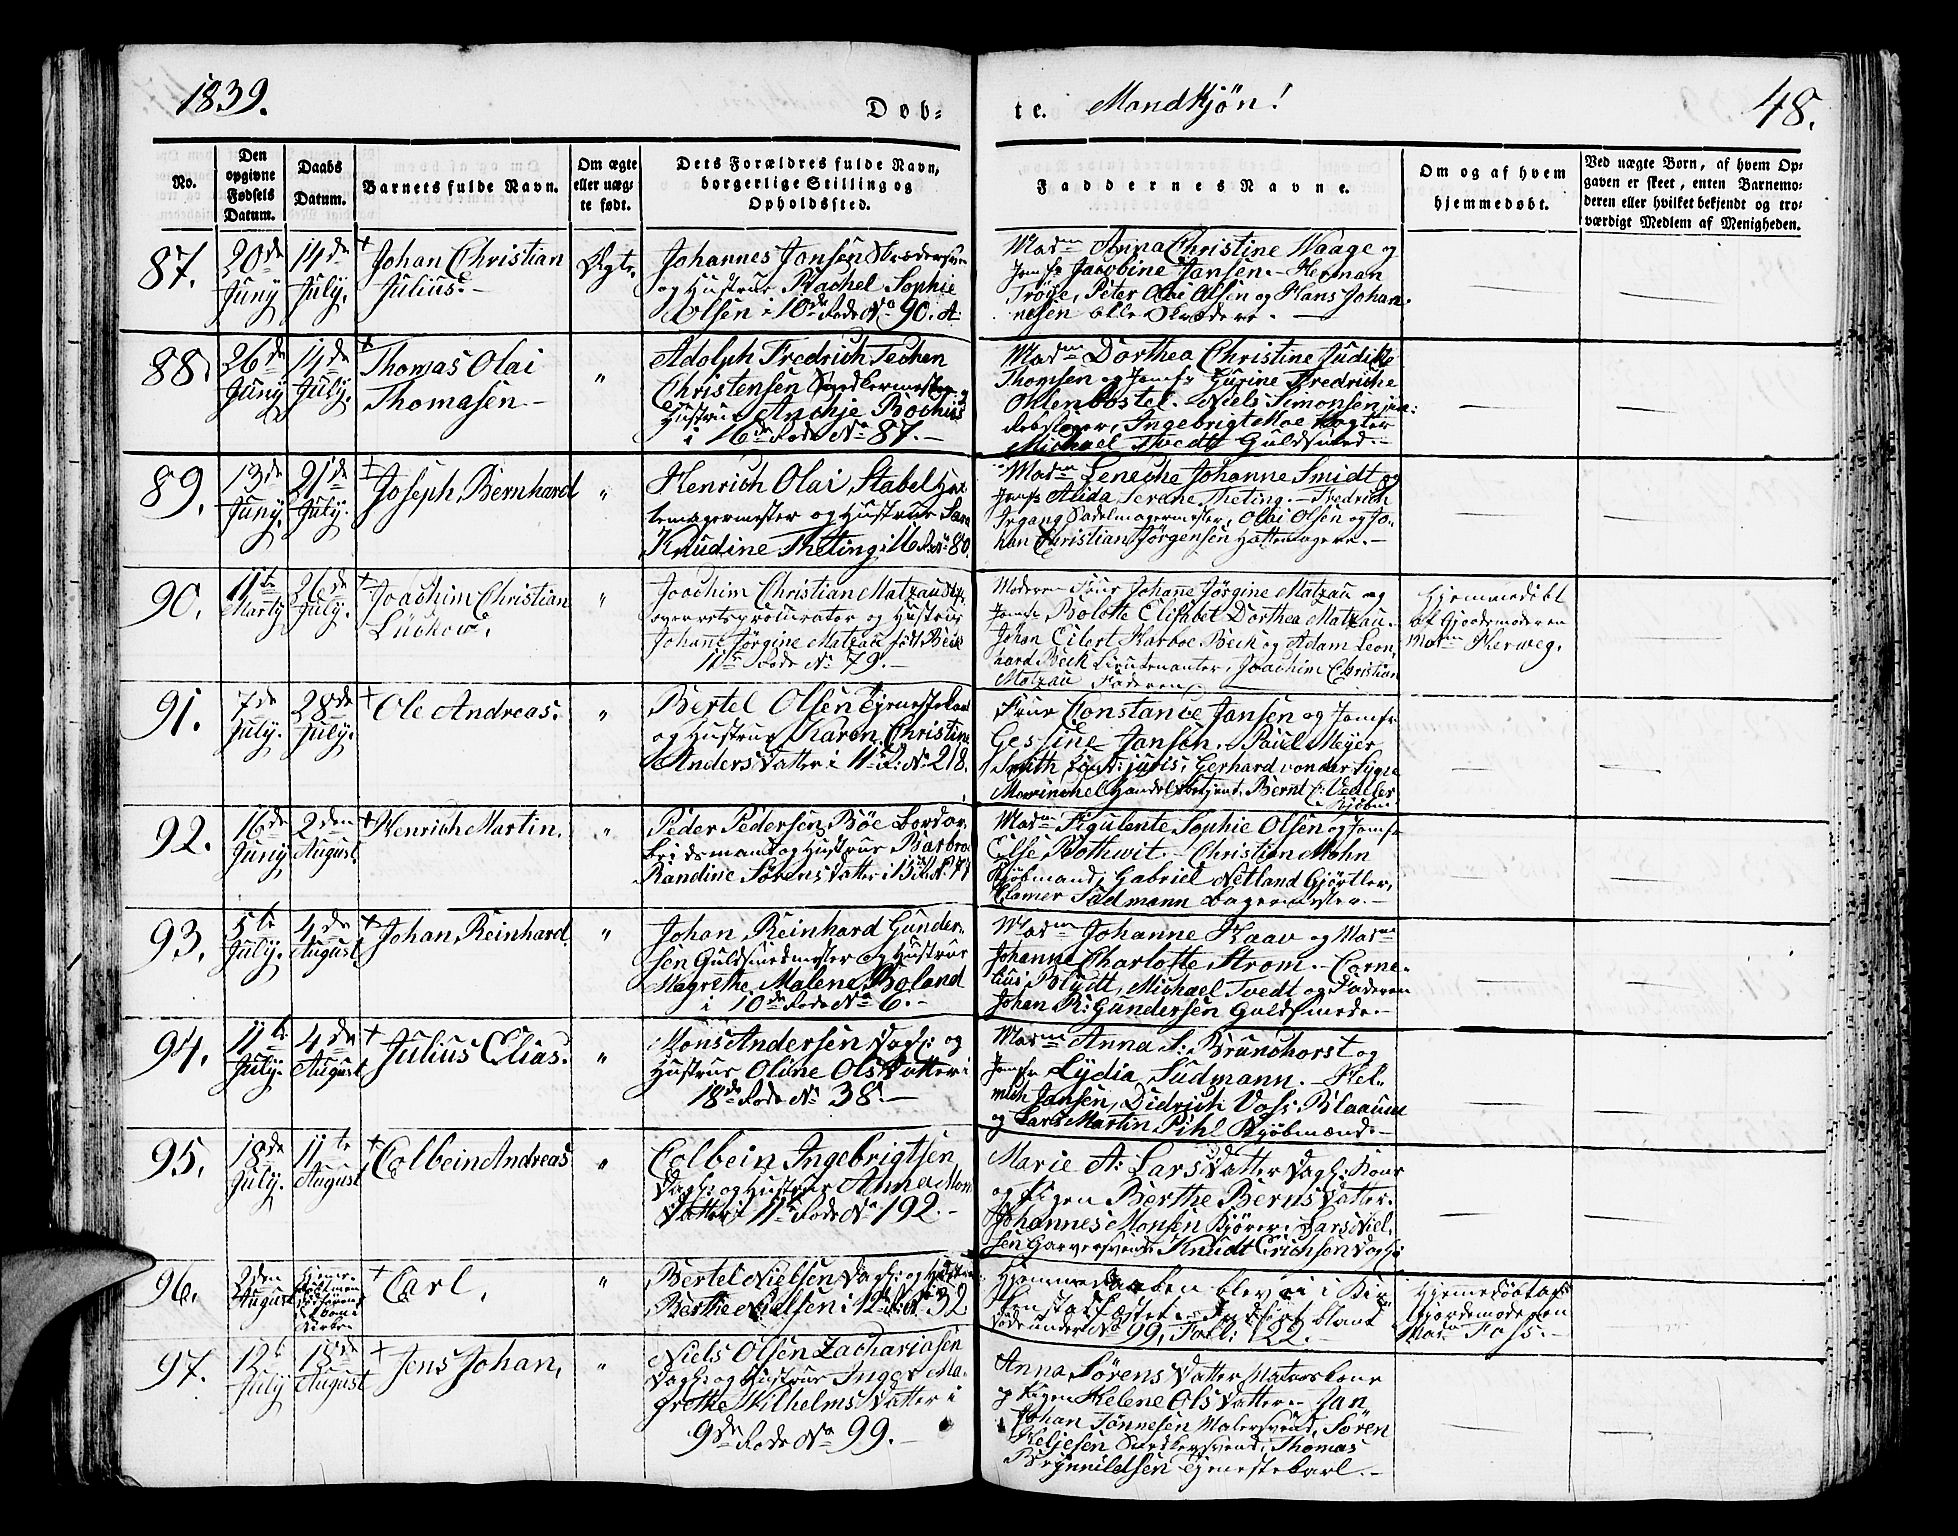 1839.
Døb-
te.
Mandkjøn!
48.
No.
Den
opgivne
Fødsels
Datum.
Daabs
Datum.
Barnets fulde Navn.
Om ægte
eller uæg-
te født.
Dets Forældres fulde Navn,
borgerlige Stilling og
Opholdssted.
Faddernes Navne.
Om og af hvem
hjemmedøbt.
Ved uægte Born, af hvem Op-
gaven er skeet, enten Barnemo-
deren eller hvilket bekjendt og tro-
værdigt Medlem af Menigheden.
87.
20de
Juny
14de
July.
+ Johan Christian
Julius.-
Ægte.
Johannes Jansen Skrædersven
og Hustrue Rachel Sophie
Olsen i 10de Rode No 90. A.
Madm Anna Christine Waage og
Jomfr Jacobine Jansen.- Herman
Trøye, Peter Olai Olsen og Hans Johan-
nesen alle Skrædere.-
88.
26de
Juny
14de
July.
+ Thomas Olai
Thomasen-
"
Adolph Fredrich Techen
Christensen Snedkermester og
Hustrue Anchje Bochius
i 16de Rode No 87.-
Madm Dorthea Christine Judithe
Thomsen og Jomfr Gurine Fredriche
Ohlenbostel.- Niels Simonsen jun:
Rebslager, Ingebrigt Moe Vagter
Michael Tvedt Guldsmed.-
89.
13de
Juny.
21de
July.
+ Joseph Bernhard
"
Henrich Olai Stabel Hat-
temagermester og Hustrue Sara
Knudine Theting i 16 R: No 80.
Madm Leneche Johanne Smidt og
Jomfr Alida Serene Theting.- Fredrich
Irgang Sadelmagermester, Olai Olsen og Jo-
han Christian Jørgensen Hattemagere.-
90.
11te
Marty
26de
July.
+ Joachim Christian
Lückow.
"
Joachim Christian Matzau
Overretsprocurator og Hustrue
Johanne Jørgine Matzau født Beck
11te Rode No 79.-
Moderen Frue Johanne Jørgine Matzau og
Jomfr Bolette Elisabet Dorthea Matzau.
Johan Eilert Karboe Beck og Adam Leon-
hard Beck Lieutenanter, Joachim Christian
Matzau Faderen
Hjemmedøbt
af Gjordemoderen
Madm Herweg.
91.
7de
July.
28de
July.
+ Ole Andreas.
"
Bertel Olsen Tjenestekarl
og Hustrue Karen Christine
Anders Datter i 11te R: No 218.
Frue Constance Jansen og Jomfr
Gessine Jansen. Paul Meyer
Smith Cand: juris, Gerhard von der Lippe
Handelsbetjent, Bernt C: Vedeler
Kjøbm
92.
16de
Juny
2den
August.
+ Henrich Martin.
"
Peder Pedersen Bøe Bordar-
beidsmand og Hustrue Barbro
Randine Sørens Datter i 15 R: No 77
Madm Sophie Olsen og Jomfr
Else Rothwit.- Christian Mohn
Kjøbmand, Gabriel Netland Gjørtler,
Clamer Südmann Bagermester.-
93.
5te
July.
4de
August
+ Johan Reinhard
"
Johan Reinhard Gunder-
sen Guldsmedmester og Hustrue
Magrethe Malene Boland
i 10de Rode No 6.-
Madm Johanne Kaav og Madm
Johanne Charlotte Strøm.- Corne-
lius Blydt, Michael Tvedt og Faderen
Johan R: Gundersen Guldsmede.-
94.
11te
July.
4de
August
+ Julius Elias.
"
Mons Andersen Dagl: og
Hustrue Oline Ols Datter i
18de Rode No 38.-
Madm Anna S: Brunchorst og
Jomfr Lydia Südmann.- Hel-
mich Jansen, Didrich Voss Blaauw
og Lars Martin Pihl Kjøbmænd.-
95.
18de
July.
11te
August
+ Colbein Andreas
"
Colbein Ingebrigtsen
Dagl: og Hustrue Anna Mons
Datter i 11te Rode No 192.-
Marie A: Lars Datter Dagl: Kone
og Pigen Berthe Bernts Datter.
Johannes Monsen Kjører, Lars Niel-
sen Garversvend, Knudt Erichsen Dagl:
96.
2den
August
+ Carl.
"
Bertel Nielsen Dagl: og Hustrue
Berthe Nielsen i 12te R: No 32
Hjemmedaaben blev ei i Kir-
ken stadfæstet - Indført blant
døde under No 99, Foll: 122.-
Hjemmedøbt af
Gjordemoderen
Madm Foss.-
97.
12te
July
18de
August
+ Jens Johan.
"
Niels Olsen Zachariasen
Dagl: og Hustrue Inger Ma-
grethe Wilhelms Datter i
9de Rode No 99.-
Anna Sørens Datter Matroskone
og Pigen Helene Ols Datter.- Jan
Johan Tønnesen Malersvend, Søren
Heljesen Snedkersvend, Thomas
Brynnildsen Tjenestekarl.-